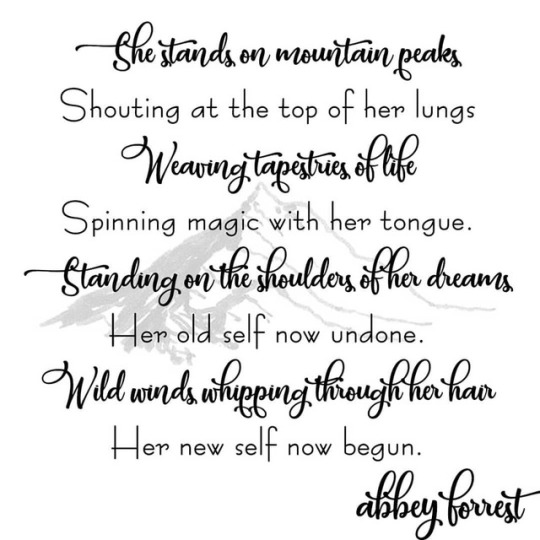 She stands on mountain peaks
Shouting at the top of her lungs
Weaving tapestries of life
Spinning magic with her tongue.
Standing on the shoulders of her dreams
Her old self now undone.
Wild winds whipping through her hair
Her new self now begun.
abbey forrest